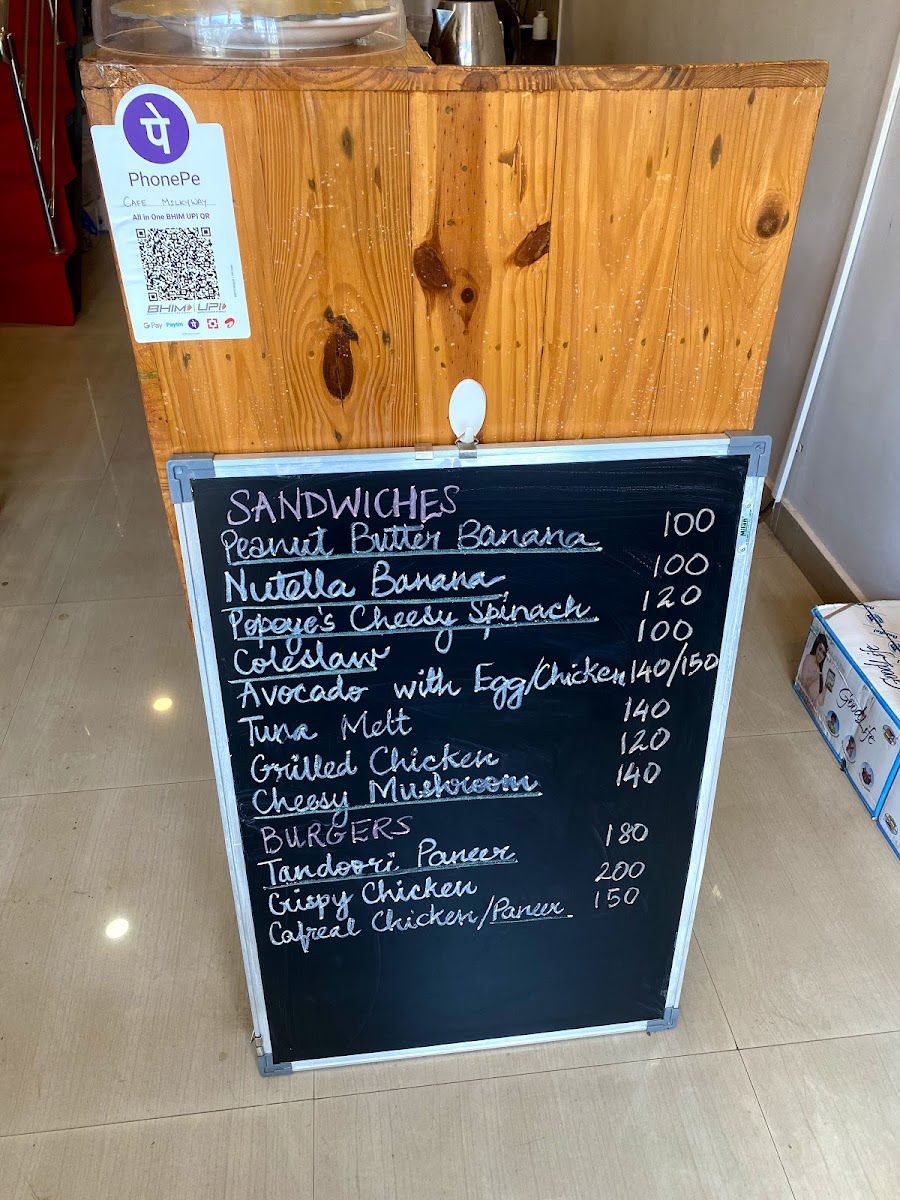 पे
PhonePe
CAFE MILKYWAY
All in One BHIM UPI QR
BHIM UPI
G Pay Paytm पे
SANDWICHES
Peanut Butter Banana 100
Nutella Banana 100
Popeye's Cheesy Spinach 120
Coleslaw 100
Avocado with Egg/Chicken 140/150
Tuna Melt 140
Grilled Chicken 120
Cheesy Mushroom 140
BURGERS
Tandoori Paneer 180
Crispy Chicken 200
Cafreal Chicken/Paneer 150
Good Life